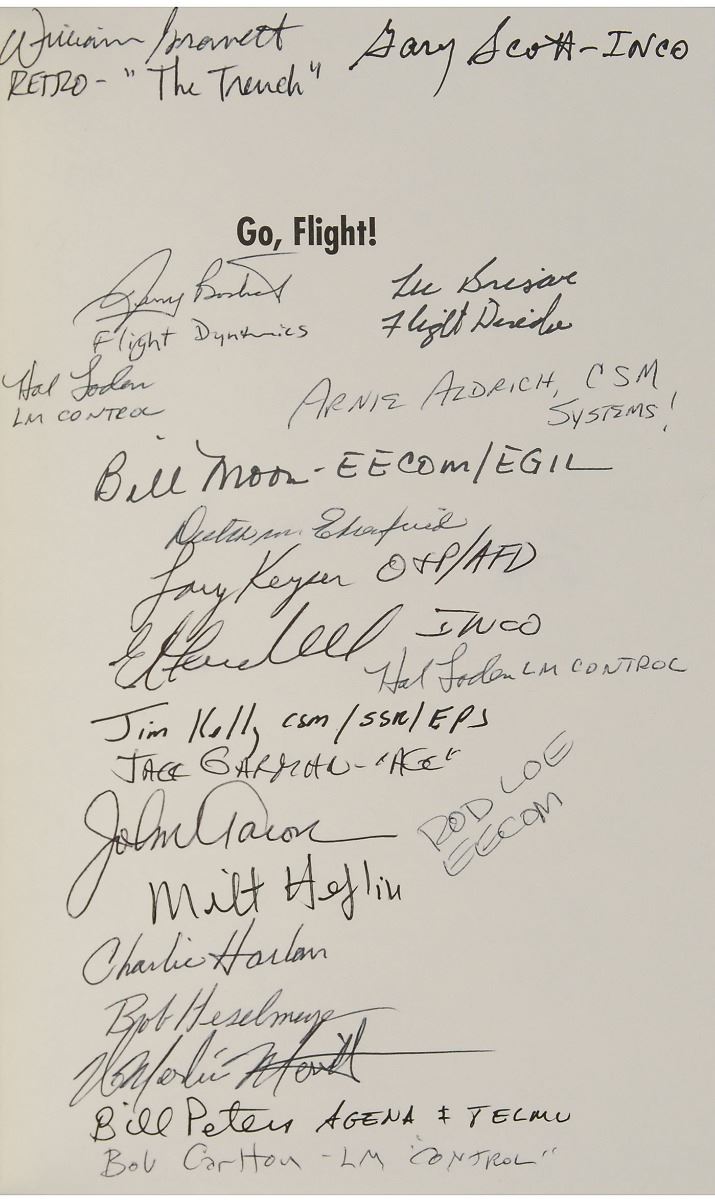 William Boone Gary Scott - INCO
RETRO - "The Trench"
Go, Flight!
Jerry Bostick
Flight Dynamics
Lee Briscoe
Flight Director
Hal Loden
LM CONTROL
ARNIE ALDRICH, CSM
SYSTEMS!
Bill Moon - EECOM/EGIL
Larry Keyser O&P/AFD
INCO
Hal Loden LM CONTROL
Jim Kelly CSM/SSR/EPS
JACK GARMAN - "AGC"
ROD LOE
EECOM
John Aaron
Milt Heflin
Charlie Harlan
Bob Heselmeyer
Merlin Merritt
Bill Peters AGENA & TELMU
Bob Carlton - LM "CONTROL"